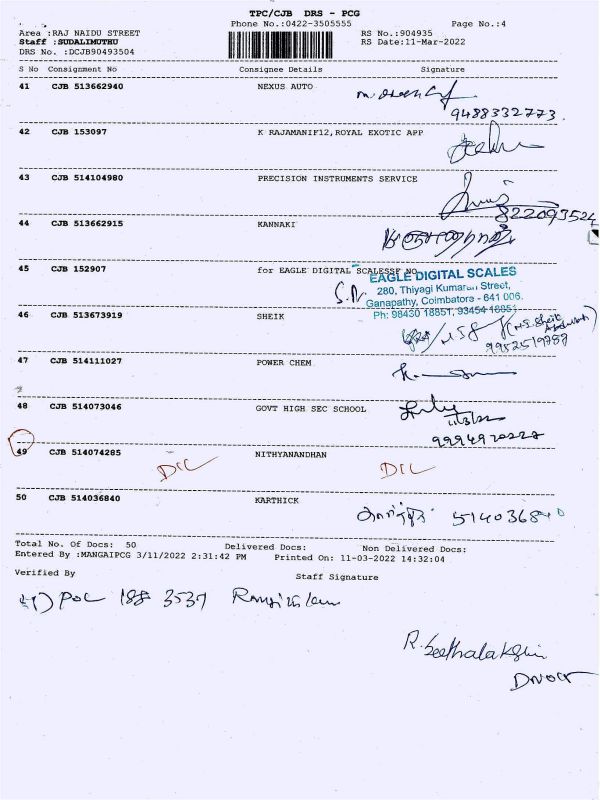 TPC/CJB DRS - PCG
Phone No.:0422-3505555 Page No.:4
Area :RAJ NAIDU STREET RS No.:904935
Staff :SUDALIMUTHU RS Date:11-Mar-2022
DRS No. :DCJB90493504
S No Consignment No Consignee Details Signature
41 CJB 513662940 NEXUS AUTO
9488332773
42 CJB 153097 K RAJAMANIF12,ROYAL EXOTIC APP
43 CJB 514104980 PRECISION INSTRUMENTS SERVICE
822093524
44 CJB 513662915 KANNAKI
45 CJB 152907 for EAGLE DIGITAL SCALESSF NO
EAGLE DIGITAL SCALES
280, Thiyagi Kumaran Street,
Ganapathy, Coimbatore - 641 006.
Ph: 98430 18851, 93454 18851
46 CJB 513673919 SHEIK
9952519787
47 CJB 514111027 POWER CHEM
48 CJB 514073046 GOVT HIGH SEC SCHOOL
49 CJB 514074285 NITHYANANDHAN
DIL DIL
50 CJB 514036840 KARTHICK
514036840
Total No. Of Docs: 50 Delivered Docs: Non Delivered Docs:
Entered By :MANGAIPCG 3/11/2022 2:31:42 PM Printed On: 11-03-2022 14:32:04
Verified By Staff Signature
POC 188 3537
R. Seethalakshmi